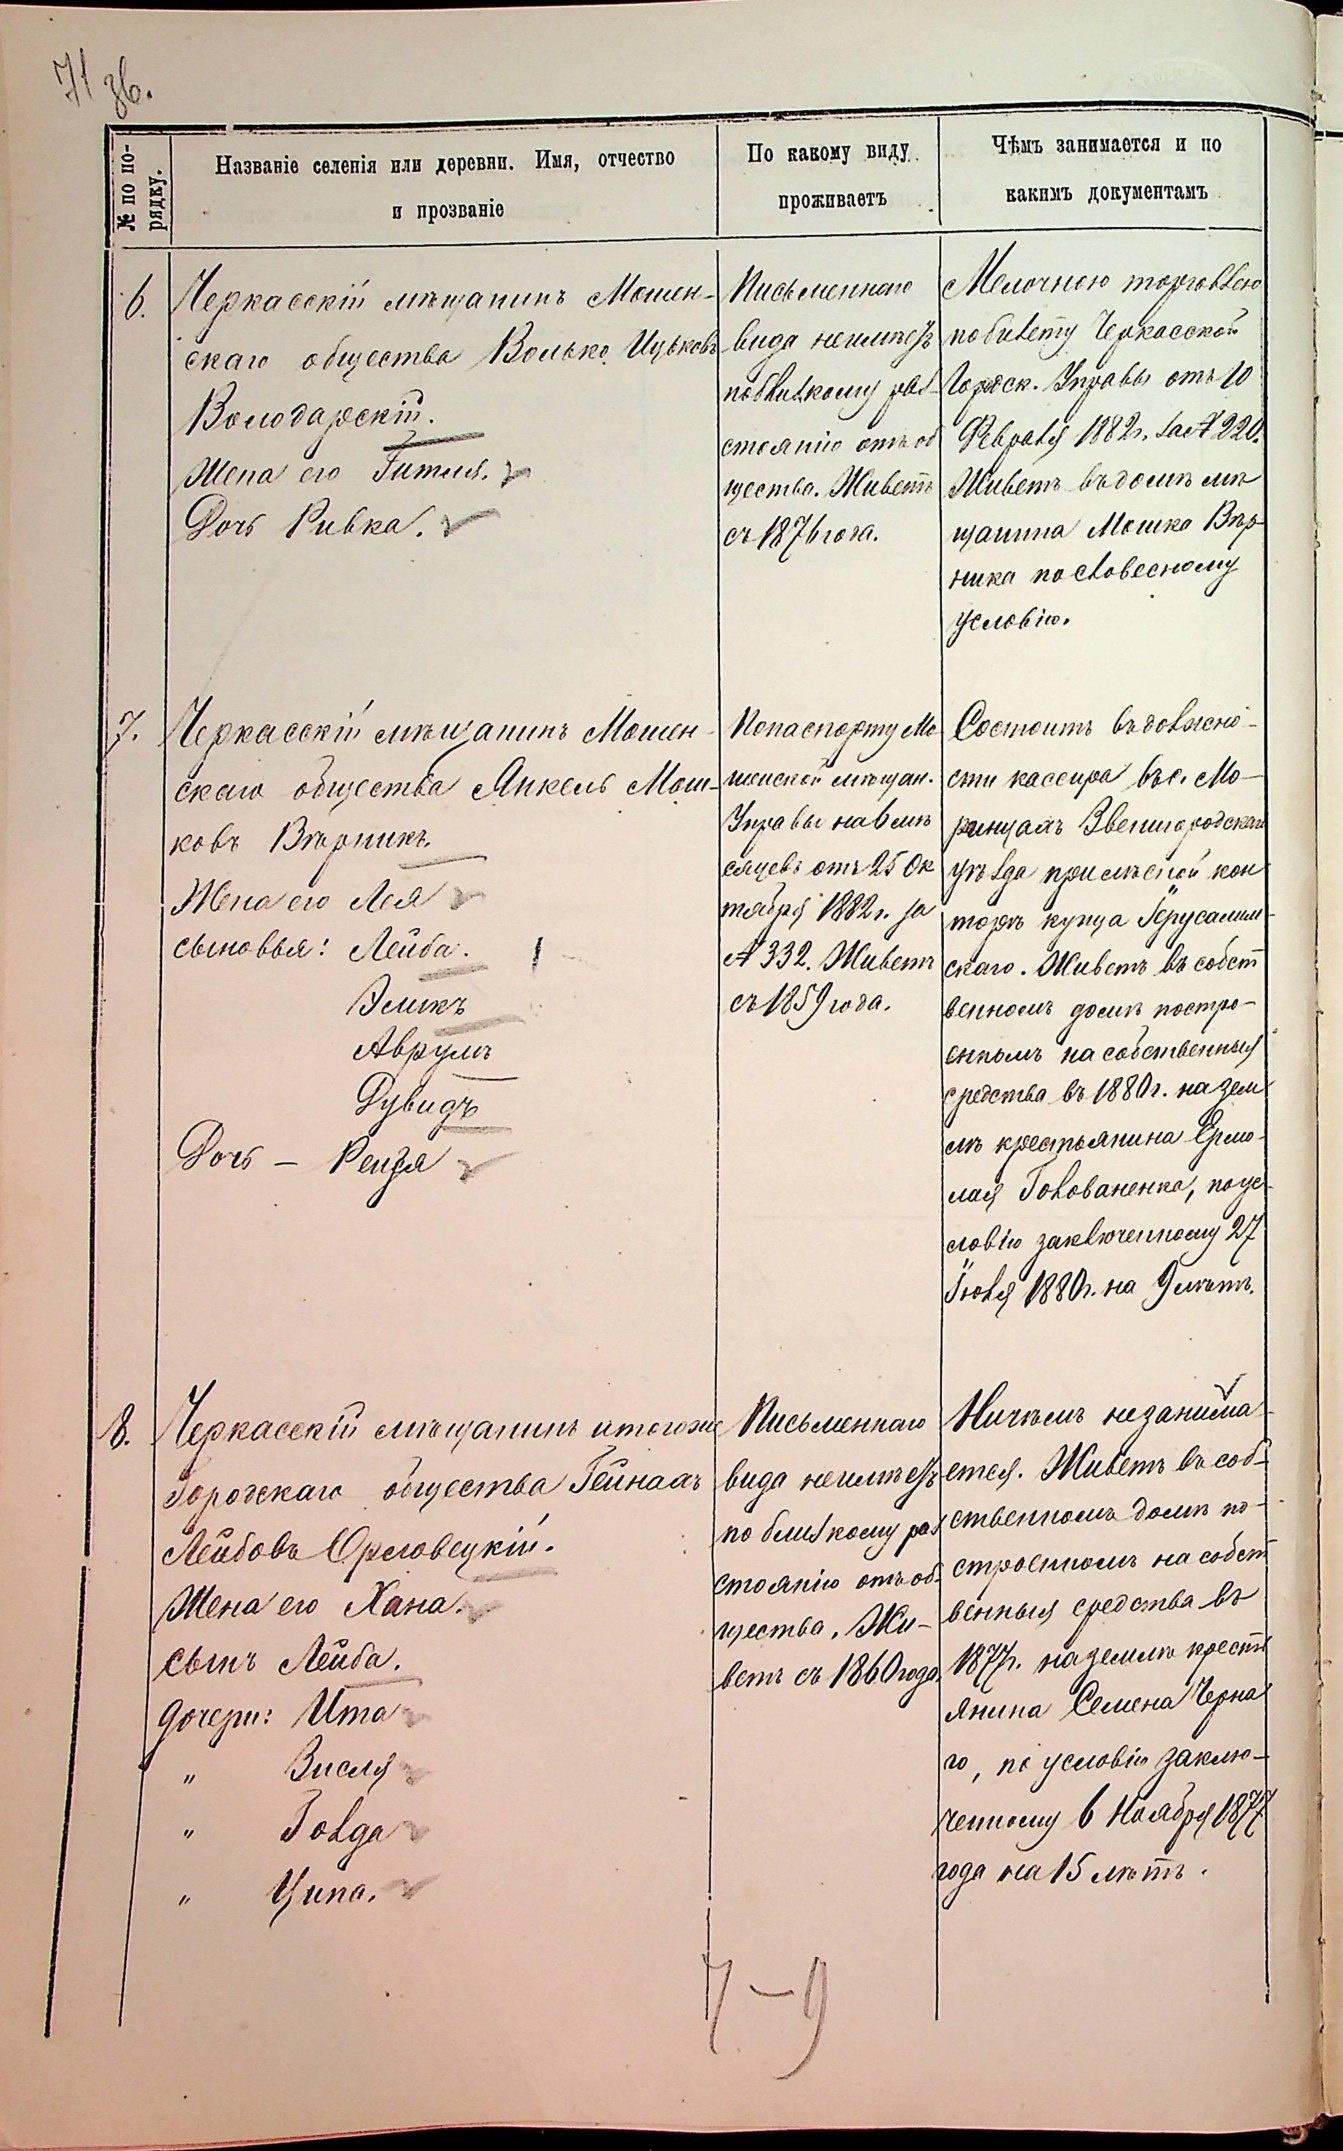 71 зв.
№ по по-
рядку.
Названіе селенія или деревни. Имя, отчество
и прозваніе
По какому виду
проживаетъ
Чѣмъ занимается и по
какимъ документамъ
6.
Черкасскій мѣщанинъ Мошен-
скаго общества Волько Ицьковъ
Володарскій.
Жена его Гитля.
Дочь Ривка.
Письменнаго
вида неимѣетъ
поблизкому раз-
стоянію отъ об
щества. Живетъ
съ 1876 года.
Мелочною торговлею
по билету Черкасской
Городск. Управы отъ 10
Февраля 1882 г. за № 220.
Живетъ въ домѣ мѣ
щанина Мошка Вѣр-
ника по словесному
условію.
7.
Черкасскій мѣщанинъ Мошен-
скаго общества Янкель Мош-
ковъ Вѣрникъ.
Жена его Лея
сыновья: Лейба.
Эликъ
Аврумъ
Дувидъ
Дочь – Рейзя
По паспорту Мо
шенской мѣщан.
Управы на 6 мѣ
сяцевъ отъ 25 Ок
тября 1882 г. за
№ 332. Живетъ
съ 1859 года.
Состоитъ въ должно-
сти кассира въ с. Мо-
ринцахъ Звенигородскаго
уѣзда при лѣсной кон
торѣ купца Іерусалим-
скаго. Живетъ въ собст
венномъ домѣ постро-
енномъ на собственныя
средства въ 1880 г. на зем
лѣ крестьянина Ермо-
лая Голованенка, по ус-
ловію заключенному 27
Іюля 1880 г. на 9 лѣтъ.
8.
Черкасскій мѣщанинъ и того же
Городскаго общества Гейнахъ
Лейбовъ Орловецкій.
Жена его Хана.
сынъ Лейба.
дочери: Ита
" Зисля
" Голда
" Ципа.
Письменнаго
вида неимѣетъ
по близкому раз
стоянію отъ об-
щества. Жи-
ветъ съ 1860 года.
Ничѣмъ незанима-
ется. Живетъ въ соб-
ственномъ домѣ по-
строенномъ на собст
венныя средства въ
1877 г. на землѣ кресть
янина Семена Черна
го, по условію заклю-
ченному 6 Ноября 1877
года на 15 лѣтъ.
7–9